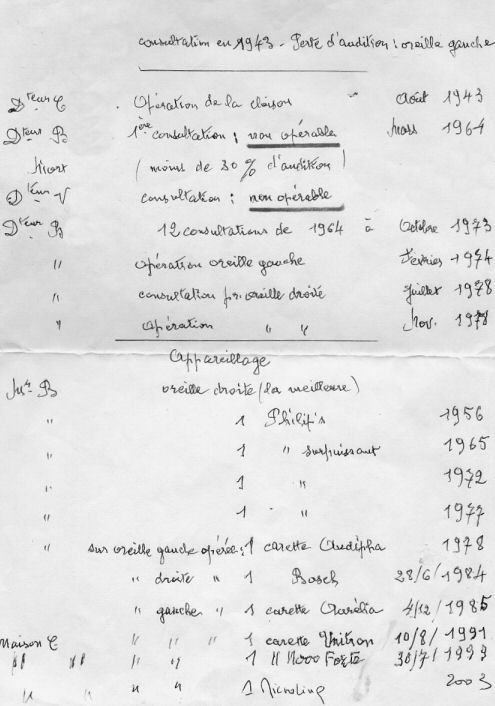 consultation en 1943 - Perte d'audition : oreille gauche
Dteur C . Opération de la cloison - Août 1943
Dteur B 1ère consultation : non opérable Mars 1964
Mort (moins de 30 % d'audition)
Dteur V consultation : non opérable
Dteur B 12 consultations de 1964 à Octobre 1973
" opération oreille gauche Février 1974
" consultation pr. oreille droite Juillet 1978
" Opération " " Nov. 1978
Appareillage
Mr B oreille droite (la meilleure)
" 1 Philip's 1956
" 1 " surpuissant 1965
" 1 " 1972
" 1 " 1977
" sur oreille gauche opérée : 1 carette Audipha 1978
" droite " 1 Bosch 28/6/1984
" gauche " 1 carette Aurélia 4/12/1985
Maison C " " " 1 carette Unitron 10/8/1991
" " " " 1 " Forte 30/7/1993
" " " " 1 2003